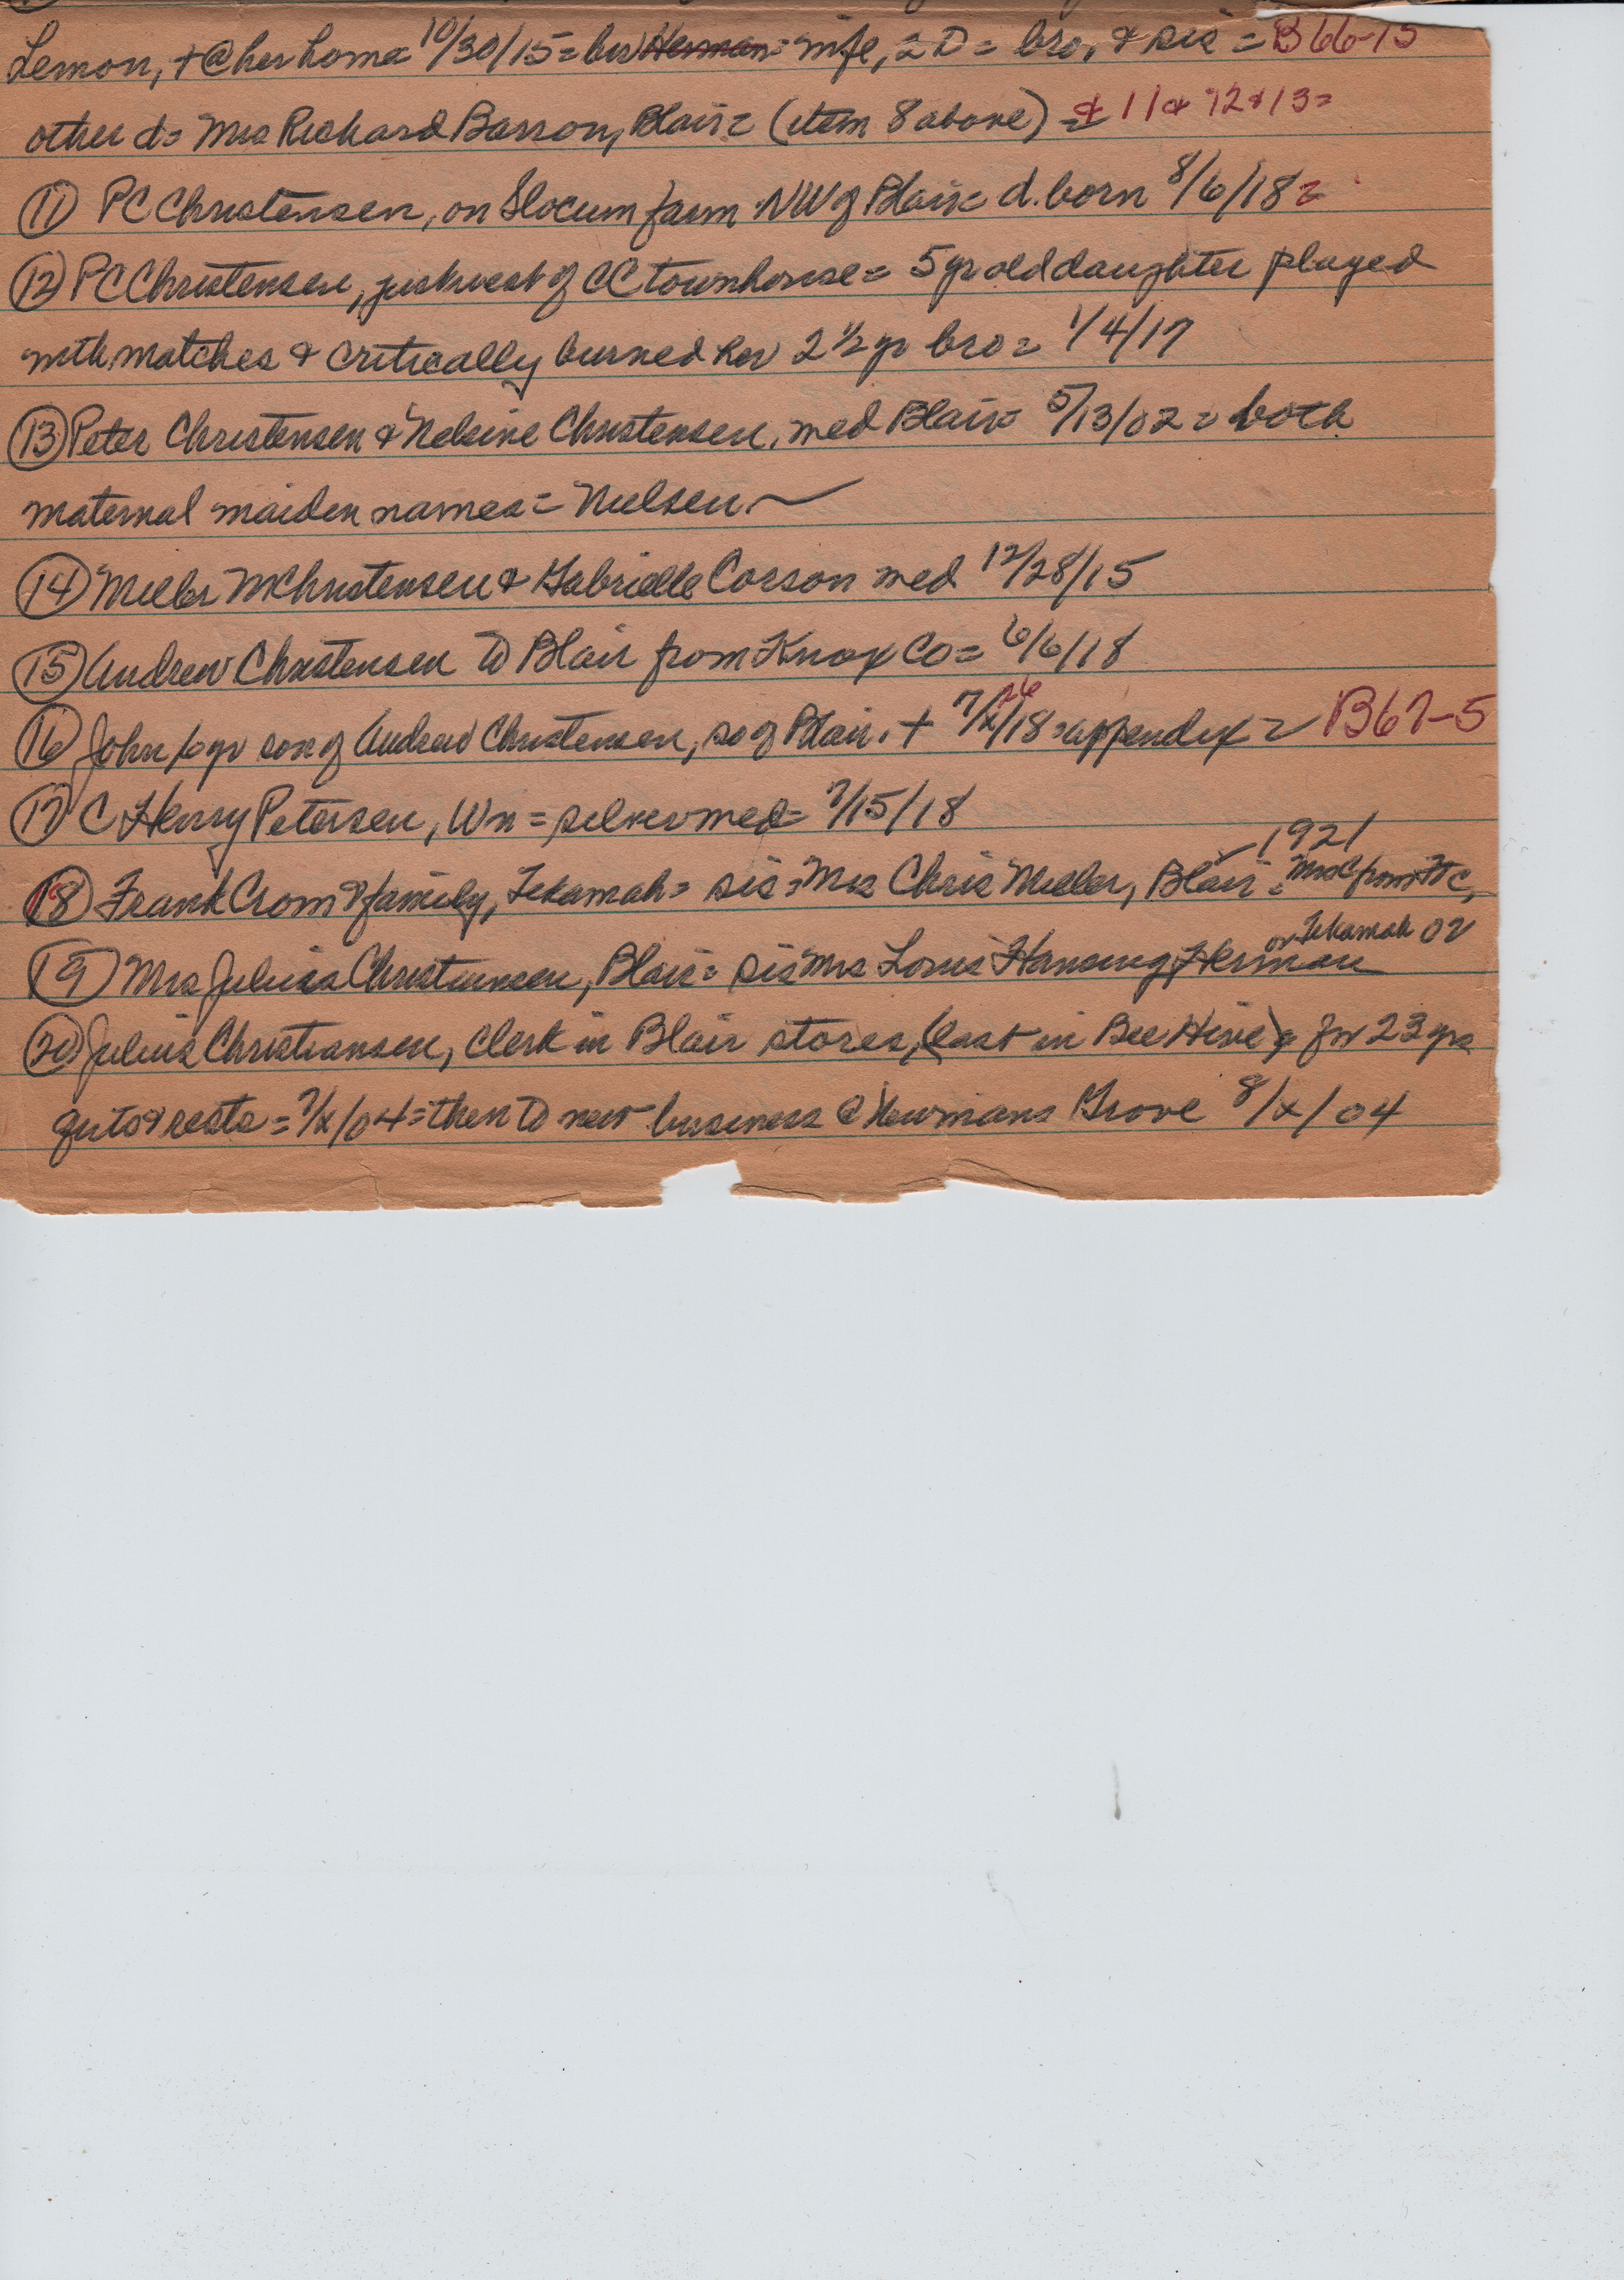 Lemon, + @ her home 10/30/15 = her Herman = wife, 2 D = bro. & sis = B66-15
other d = Mrs Richard Barron, Blair = (item 8 above) = & 11 & 12 & 13 =
(11) PC Christensen, on Slocum farm NW of Blair = d. born 8/6/18 =
(12) PC Christensen, just west of CC townhouse = 5 yr old daughter played
with matches & critically burned her 2 1/2 yr bro = 1/4/17
(13) Peter Christensen & Nelsine Christensen, med Blair = 5/13/02 = both
maternal maiden names = Nielsen
(14) Christensen & Gabrielle Corson med 12/28/15
(15) Andrew Christensen to Blair from Knox Co = 6/6/18
(16) John, 6 yr son of Andrew Christensen, so of Blair. + 7/x/18 = appendix = B67-5
26
(17) C Henry Petersen, Wn = silver med = 7/15/18
(18) Frank Crom & family, Tekamah = sis = Mrs Chris Miller, Blair = 1921
(19) Mrs Julius Christiansen, Blair = sis Mrs Louis Hansen, Herman or Tekamah or
(20) Julius Christiansen, clerk in Blair stores, (last in Bee Hive) & for 23 yrs
quits & rests = 7/x/04 = then to new business @ Newmans Grove 8/x/04